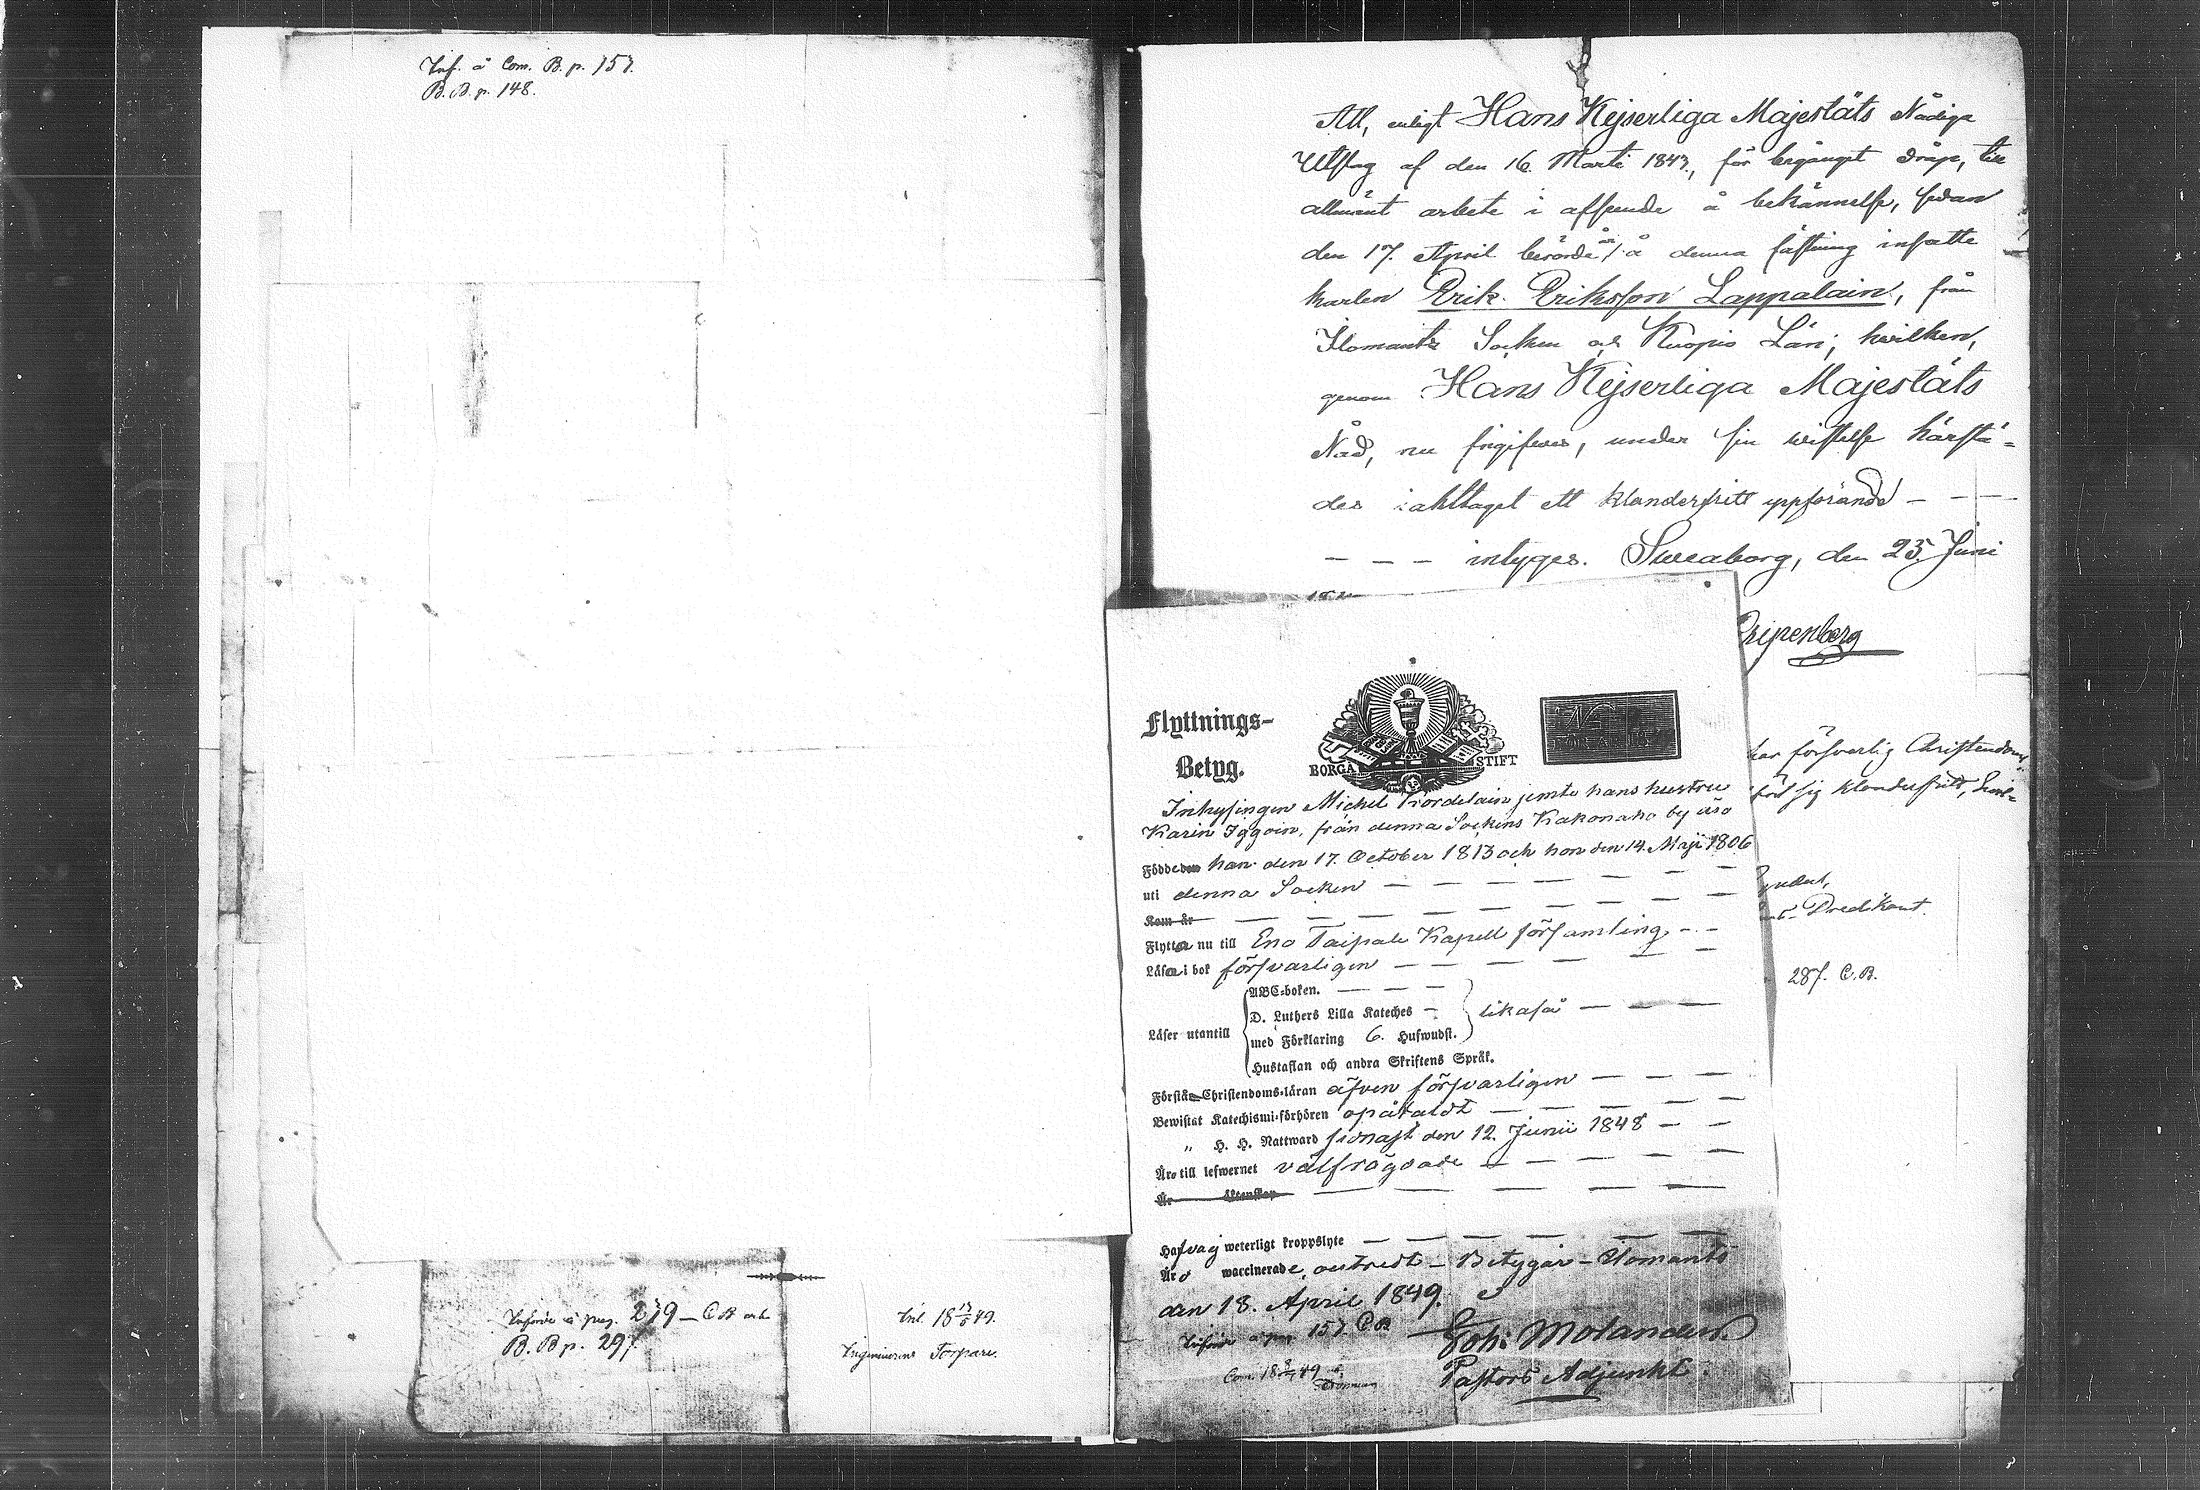 Inf. å Com. B. p. 157.
B. B. p. 148.
Införde å pag. 279 — C B och
B. B p. 297.
Inl. 18 13/5 49.
Ingenieurens Torpare.
Att, enligt Hans Kejserliga Majestäts Nådiga
Utslag af den 16 Martii 1843, för begånget dråp, till
allmänt arbete i afseende å bekännelse, sedan
den 17. April berörde år, å denna fästning insatte
karlen Erik Eriksson Lappalain, från
Ilomants Socken och Kuopio Län; hvilken,
genom Hans Kejserliga Majestäts
Nåd, nu frigifves, under sin vistelse härstä-
des iakttagit ett klanderfritt uppförande — — —
— — — intyges. Sveaborg, den 25 Juni
Gripenberg
har försvarlig Christendoms
fört sig klanderfritt,
Predikant.
287. C. B.
Flyttnings-
Betyg.
BORGÅ STIFT
Inhysingen Michel Pördelain jemte hans hustru
Karin Iggoin, från denna Sockens Kakonaho by äro
Födde den han den 17. October 1813 och hon den 14. Maji 1806
uti denna Socken — — — — — — —
Kom år — — — — — — — —
Flytta nu till Eno Taipale Kapell församling — —
Läsa i bok försvarligen — — — — — —
Läser utantill
ABC-boken. — — —
D. Luthers Lilla Kateches —
med Förklaring 6. Hufwudst.
likaså — — —
Hustaflan och andra Skriftens Språk.
Förstå Christendoms-läran äfven försvarligen — — —
Bewistat Katechismi-förhören opåtaldt — — — — —
" H. H. Nattward sednast den 12. Junii 1848 — —
Äro till lefwernet välfrägdade — — — — — —
Är Äktenskap — — — — —
Hafva ej weterligt kroppslyte — — — — — — —
Äro waccinerade, outredt — Betygar — Ilomants
den 18. April 1849.
Införde å pag. 157. C B
Joh: Molander.
Com. 18 49
Pastors Adjunkt.